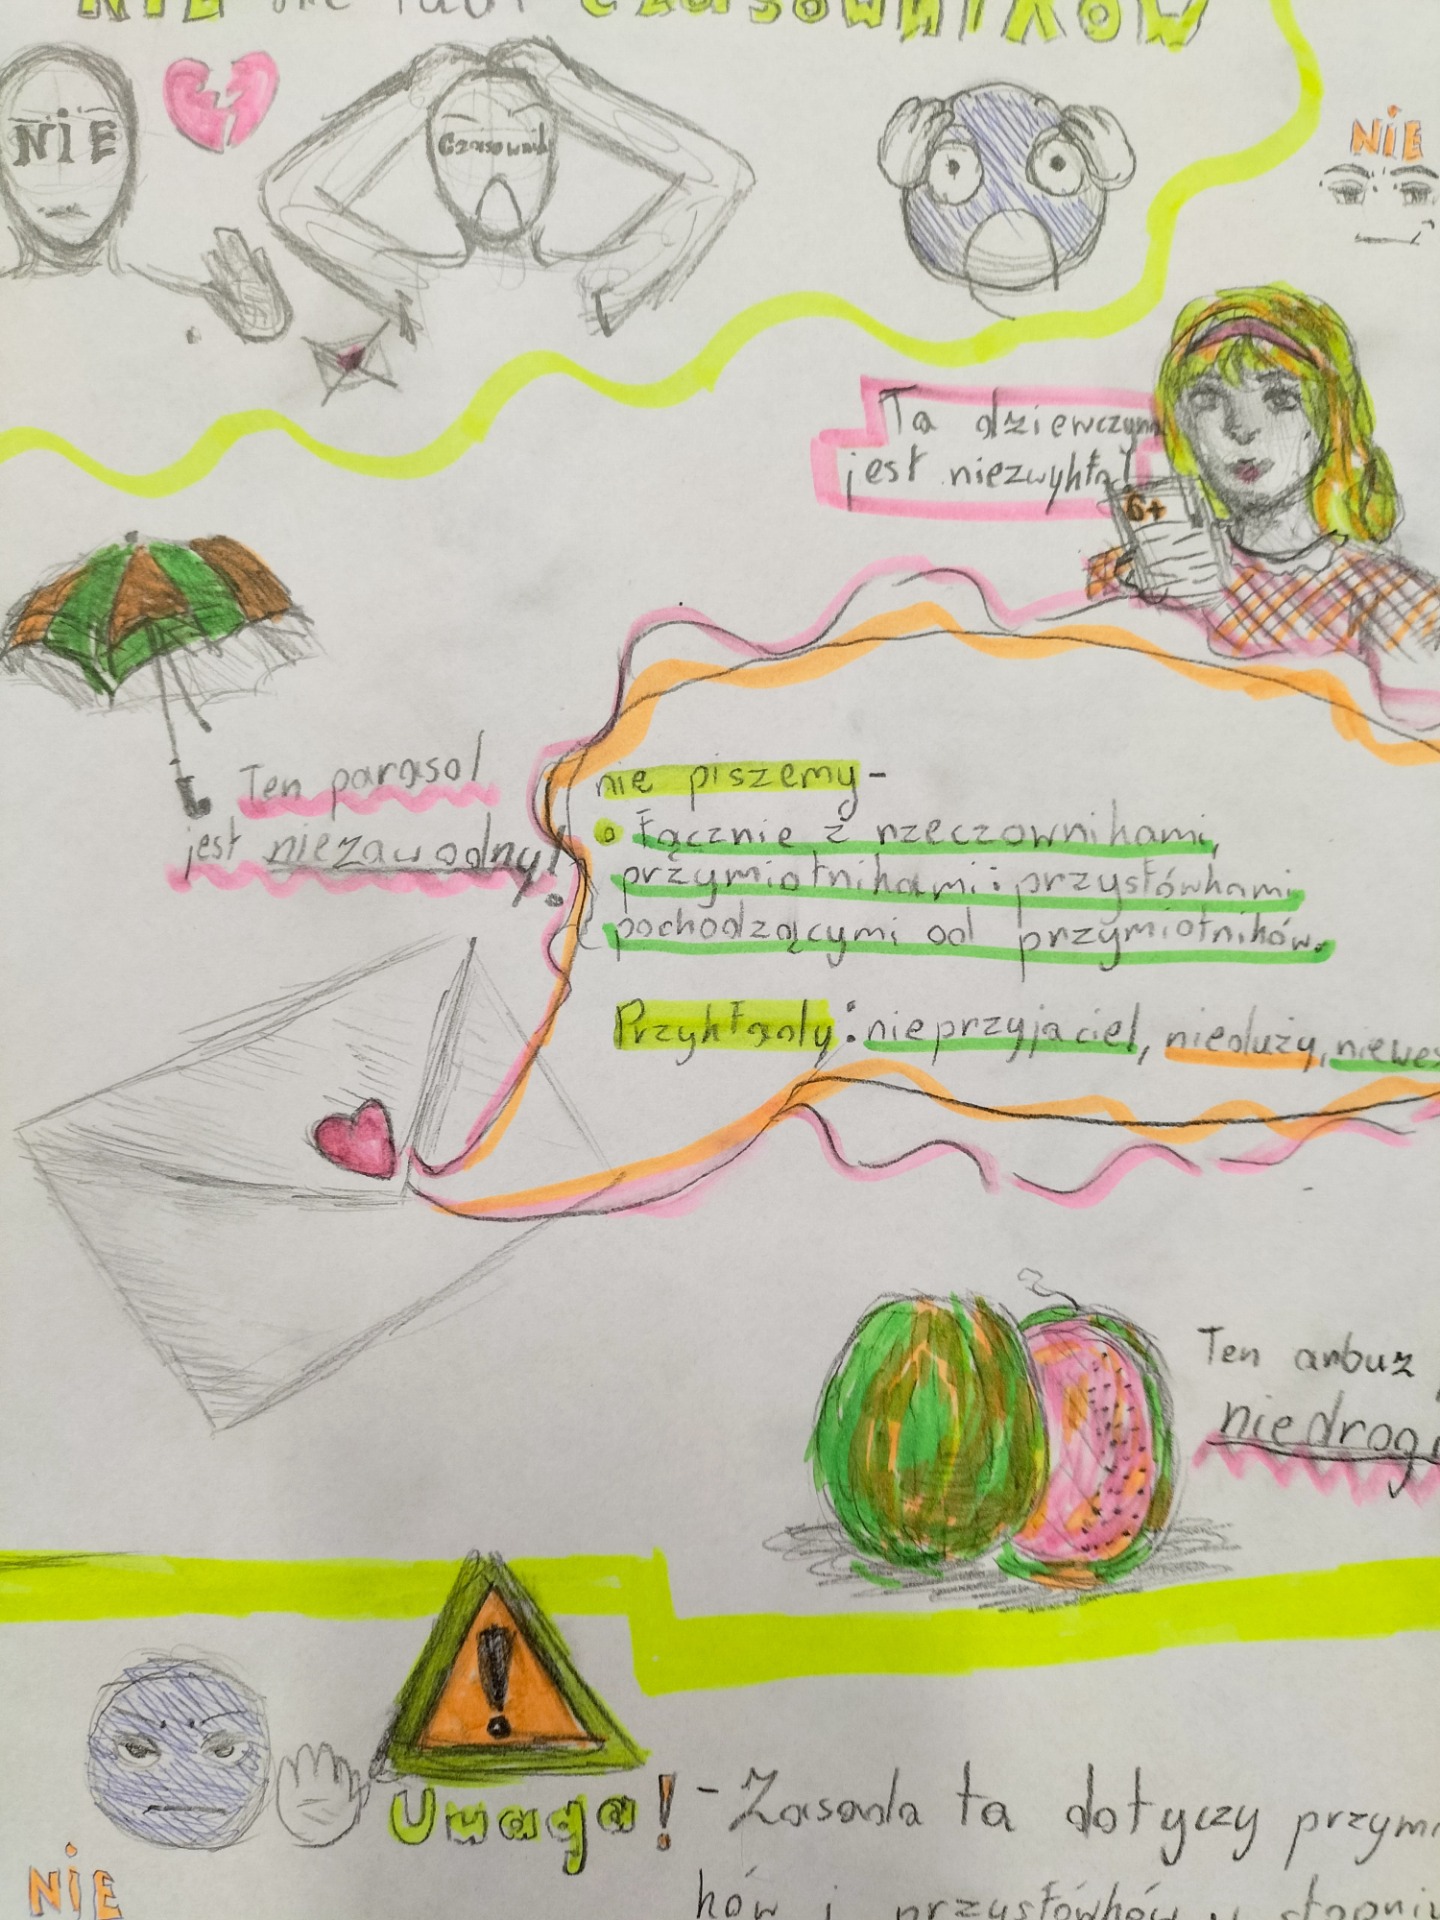 NIE nie lubi czasowników
NiE
Czasownik
NiE
Ta dziewczyna
jest niezwykła!
6+
Ten parasol
jest niezawodny!
nie piszemy -
łącznie z rzeczownikami,
przymiotnikami i przysłówkami
pochodzącymi od przymiotników.
Przykłady: nieprzyjaciel, nieduży, niewes
Ten arbuz
niedrog
Uwaga! - Zasada ta dotyczy przymi
ków i przysłówków w stopniu
NiE